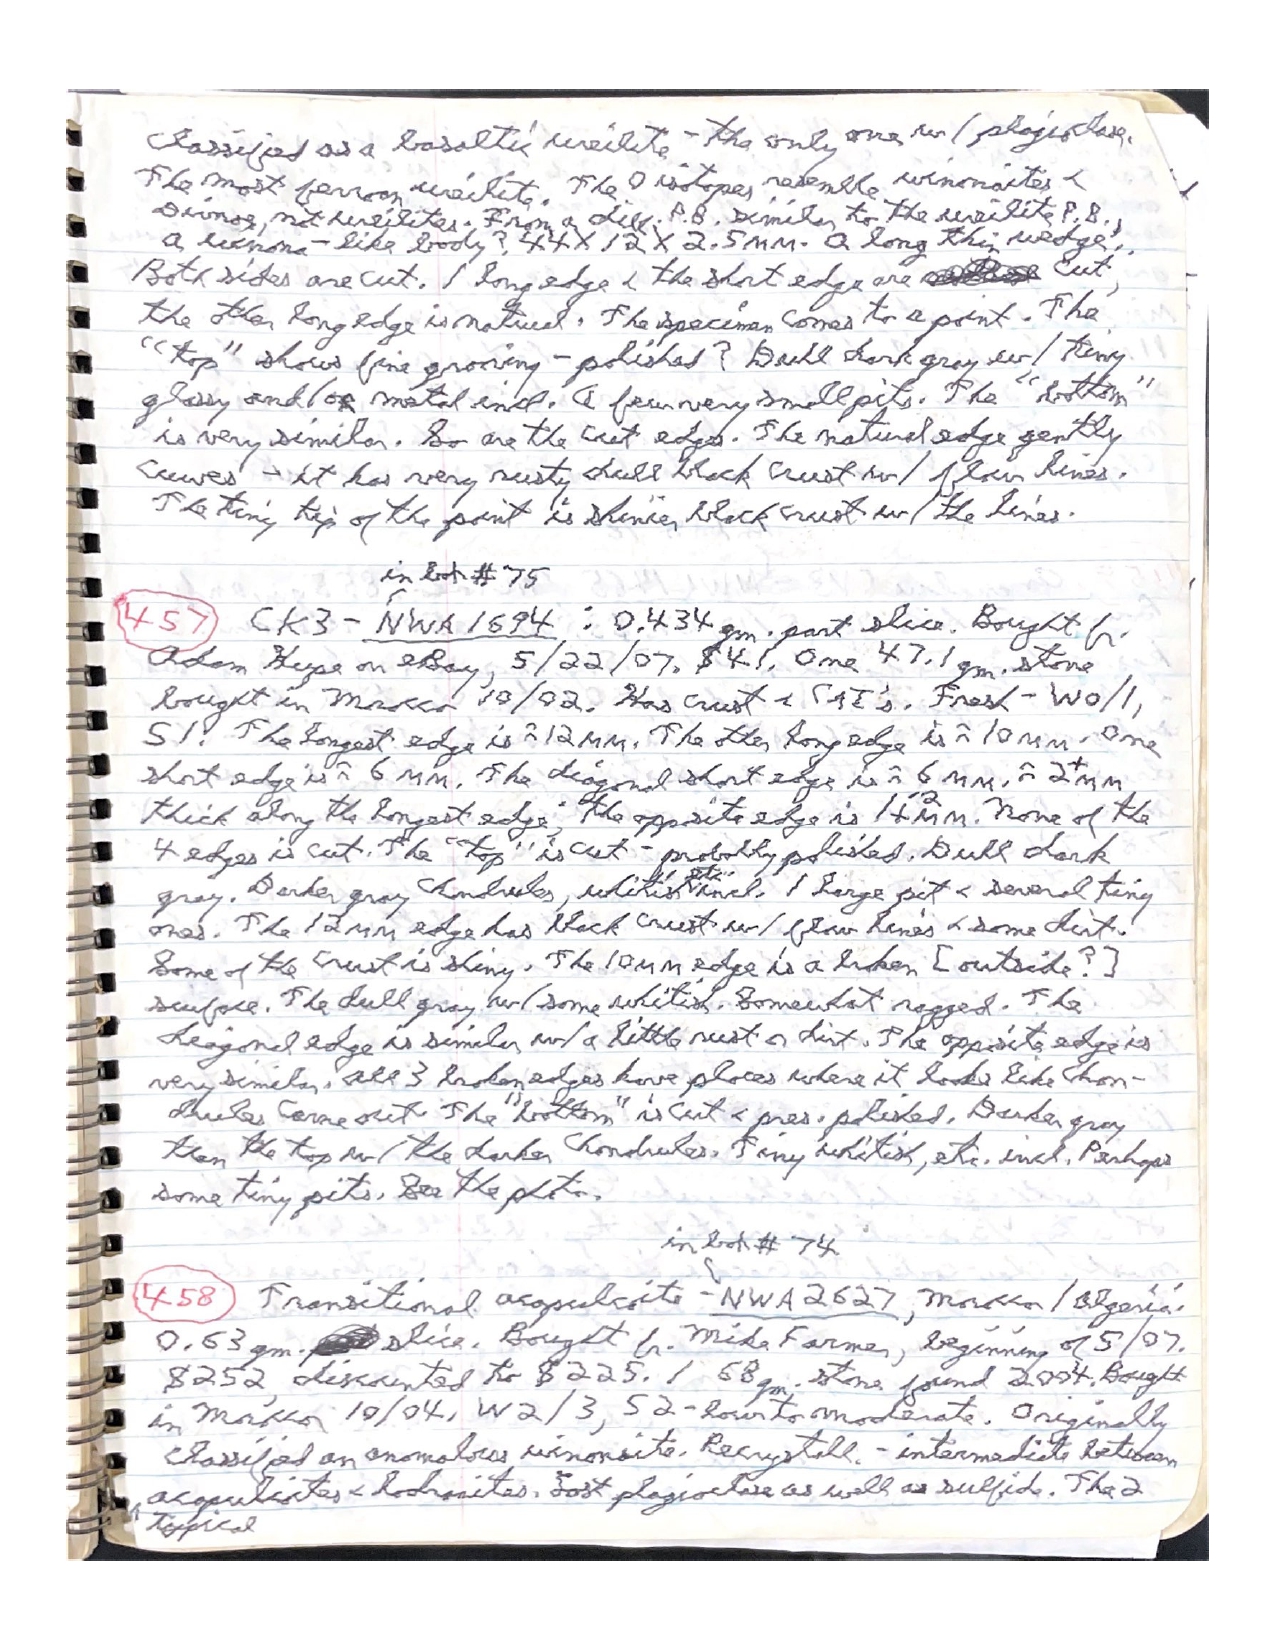 Classified as a basaltic ureilite - the only one w/ plagioclase.
The most ferroan ureilite. The O isotopes resemble winonaites &
 not ureilites. From a diff. P.B. similar to the ureilite P.B.,
a winona-like body? 44 X 12 X 2.5 mm. A long thin wedge.
Both sides are cut. 1 long edge & the short edge are cut,
the other long edge is natural. The specimen comes to a point. The
"top" shows fine grooving - polished? Dull dark gray w/ tiny
glassy and/or metal incl. A few very small pits. The "bottom"
is very similar. So are the cut edges. The natural edge gently
curves - it has very rusty dull black crust w/ flow lines.
The tiny tip of the point is shinier black crust w/ the lines.
in box # 75
457 CK3 - NWA 1694 : 0.434 gm. part slice. Bought fr.
Adam Hupe on eBay, 5/22/07. $41. One 47.1 gm. stone
bought in Morocco 10/02. Has crust & CAI's. Fresh - W0/1,
S1. The longest edge is ≈12 mm. The other long edge is ≈10 mm. One
short edge is ≈ 6 mm. The diagonal short edge is ≈ 6 mm. ≈ 2+ mm
thick along the longest edge; the opposite edge is 1½-2 mm. None of the
4 edges is cut. The "top" is cut - probably polished. Dull dark
gray. Darker gray chondrules, whitish etc. incl. 1 large pit & several tiny
ones. The 12 mm edge has black crust w/ flow lines & some dirt.
Some of the crust is shiny. The 10 mm edge is a broken [outside?]
surface. The dull gray w/ some whitish. Somewhat ragged. The
diagonal edge is similar w/ a little rust or dirt. The opposite edge is
very similar. All 3 broken edges have places where it looks like chon-
drules came out. The "bottom" is cut & pres. polished. Darker gray
than the top w/ the darker chondrules. Tiny whitish, etc. incl. Perhaps
some tiny pits. See the photo.
in box # 74
458 Transitional acapulcoite - NWA 2627, Morocco / Algeria.
0.63 gm. slice. Bought fr. Mike Farmer, beginning of 5/07.
$252, discounted to $225. 1 68 gm. stone found 2004. Bought
in Morocco 10/04. W2/3, S2 - low to moderate. Originally
classified an anomalous winonaite. Recrystall. - intermediate between
acapulcoites & lodranites. Lost plagioclase as well as sulfide. The 2
typical